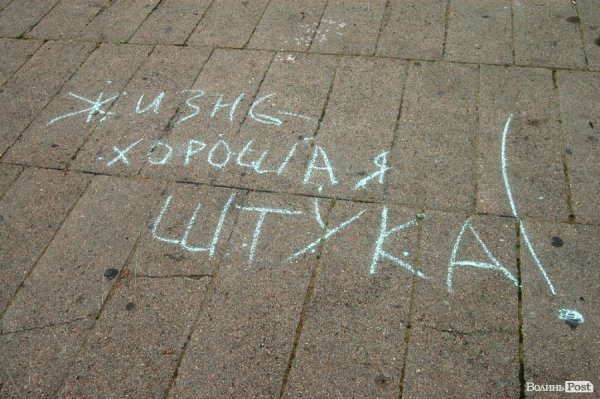 ЖИЗНЬ -
ХОРОШАЯ
ШТУКА!
ВолиньPost